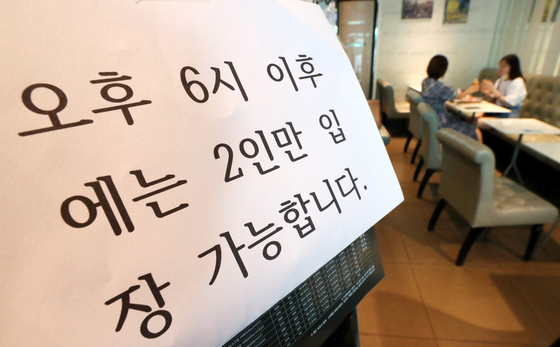 오후 6시 이후
에는 2인만 입
장 가능합니다.